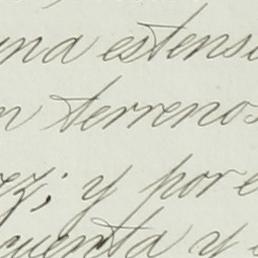 una estensi
n terrenos
ez; y por e
cuenta y e